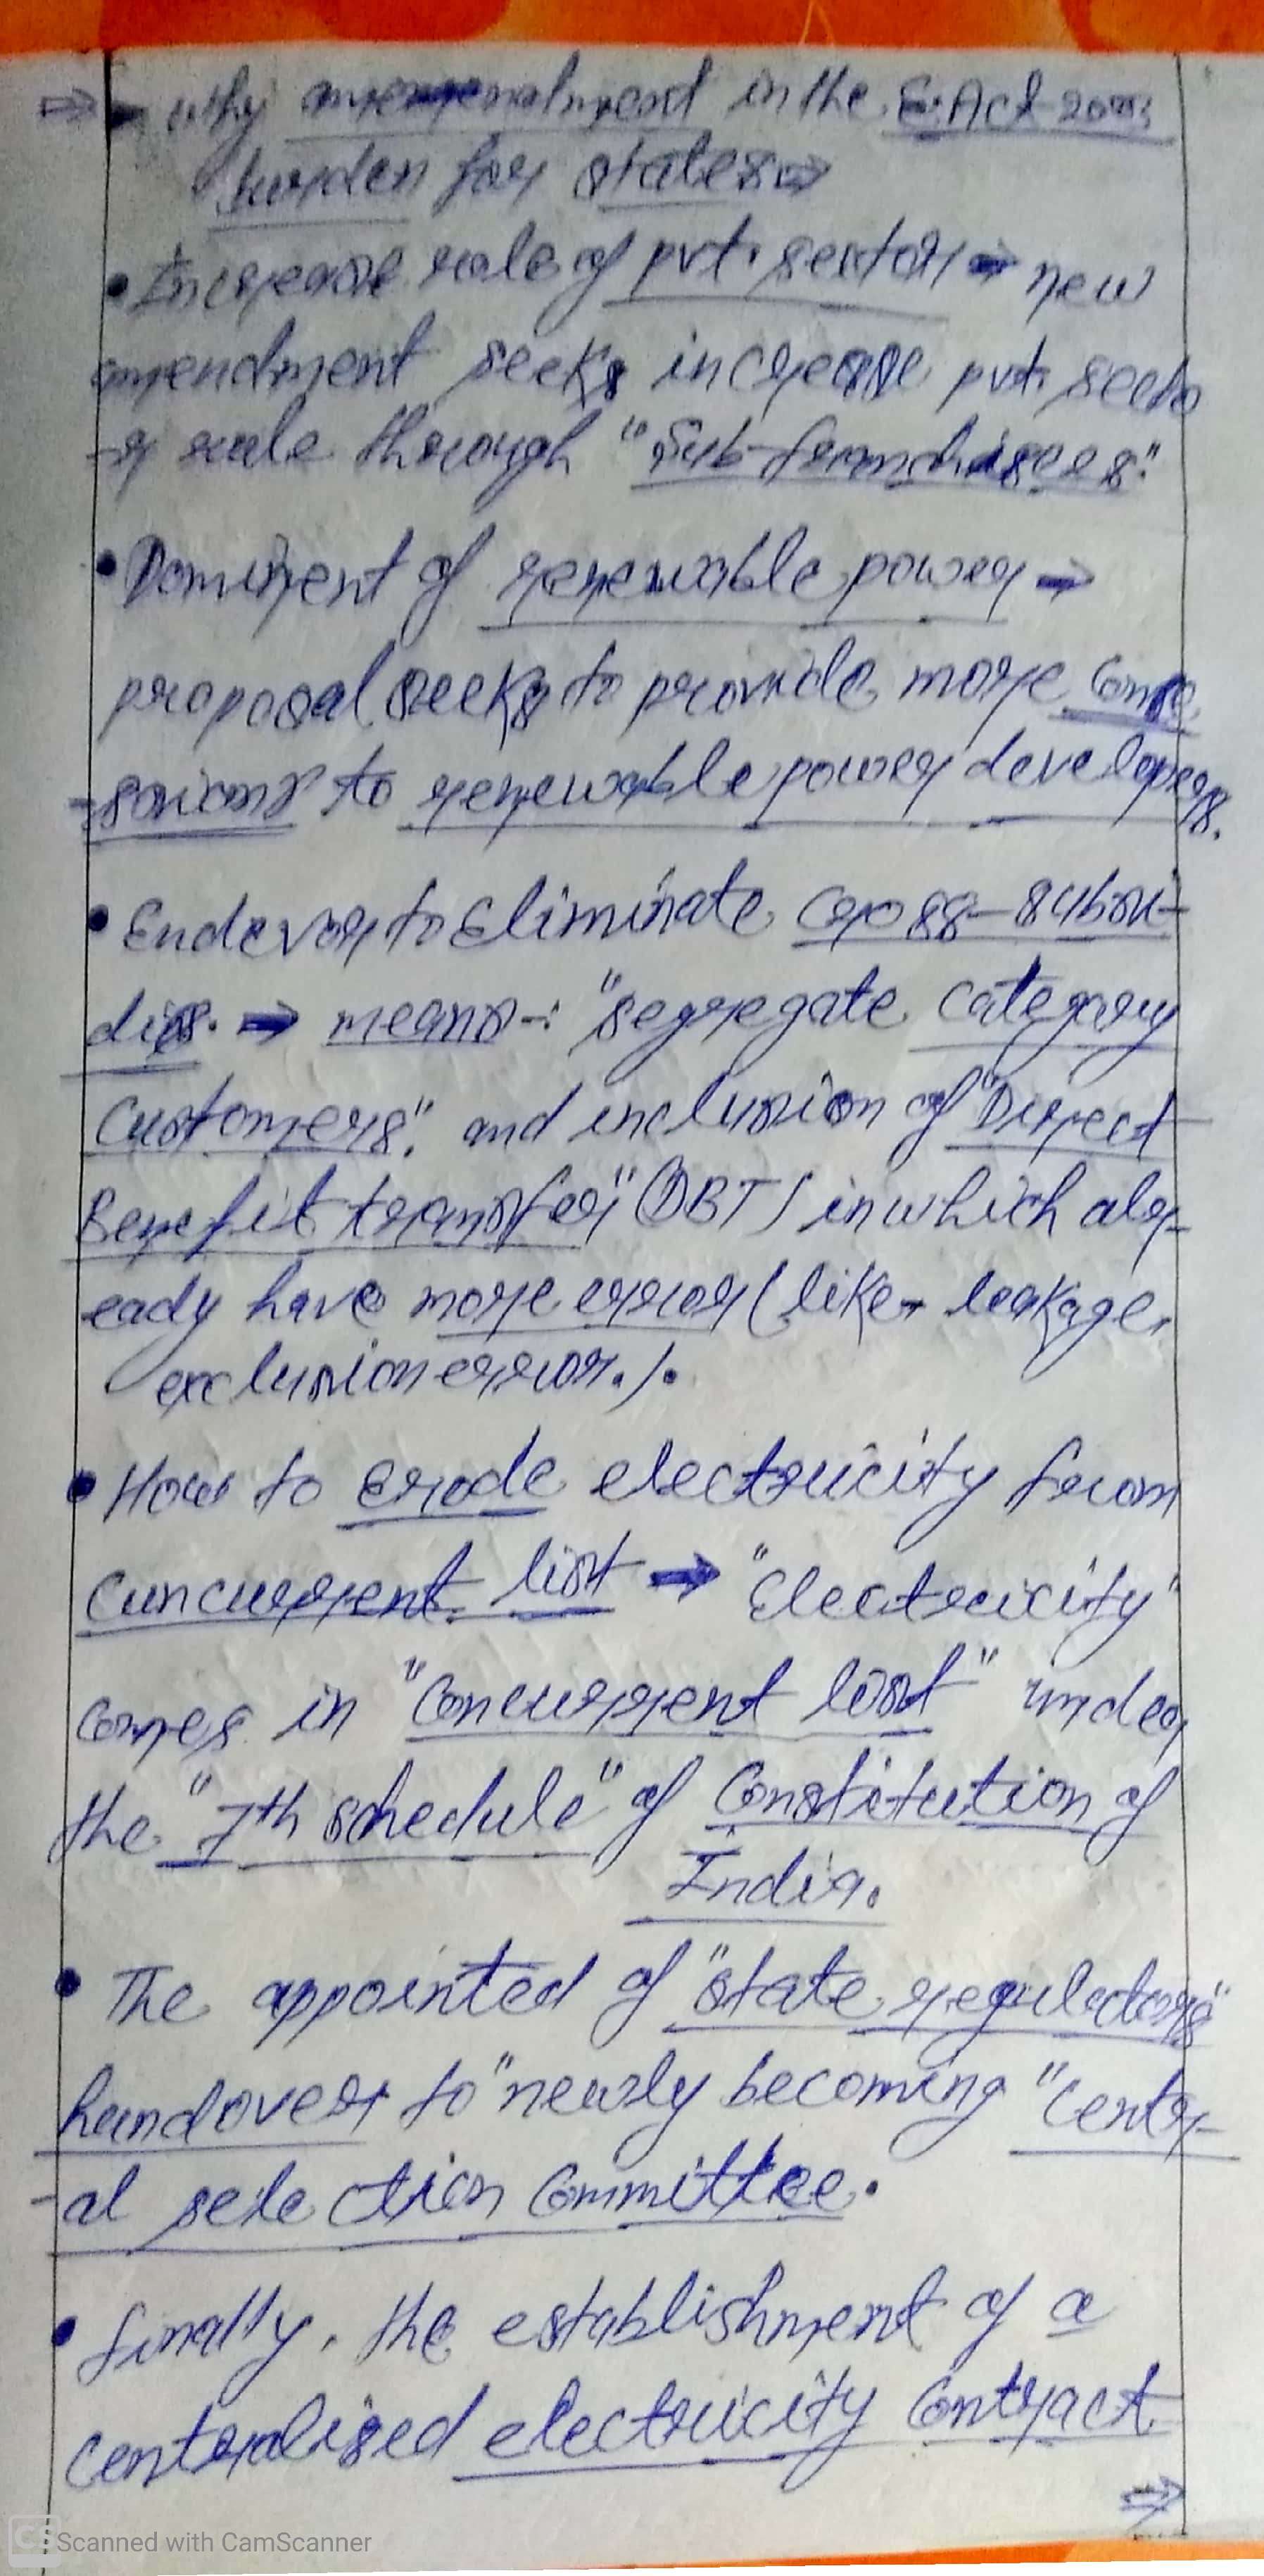 ⇒ - why amenendment in the E. Act 2003
burden for states ⇒
• Increase role of pvt. sector → new
amendment seeks increase pvt. secto
-r role through "Sub-franchisees."
• Dominent of renewable power →
proposal seeks to provide more conse
-ssions to renewable power developers.
• Endevor to Eliminate cross-subsi-
dies. → means -: "segregate category
customers." and inclusion of "Direct
Benefit transfer" (DBT) in which alr-
eady have more error (like - leakage,
exclusion error.).
• How to erode electricity from
cuncurrent list → "Electricity"
comes in "concurrent list" under
the "7th schedule" of Constitution of
India.
• The appointed of "state regulators"
handover to "newly becoming "centr-
-al selection Committee.
• finally, the establishment of a
centralised electricity Contract
⇒
CS Scanned with CamScanner